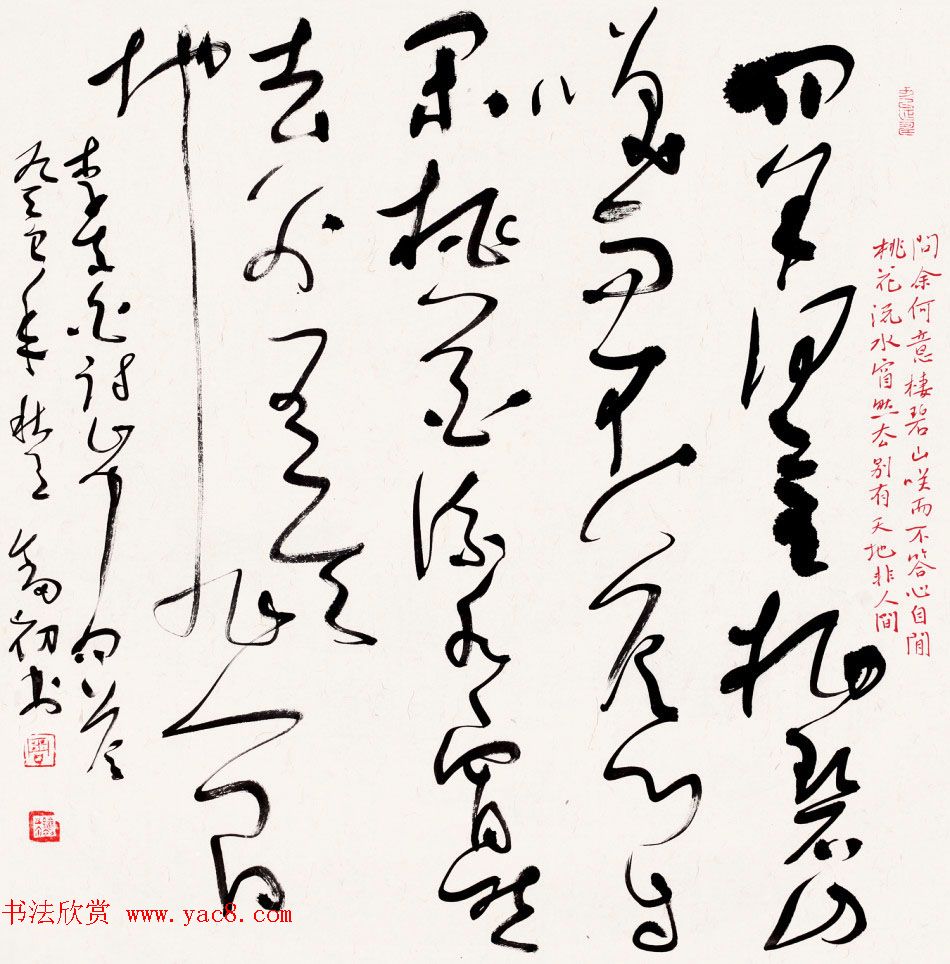 問余何意栖碧山
笑而不答心自
閑桃花流水窅然
去別有天
地非人間
李太白詩山中問答
癸巳年秋 初書
問余何意棲碧山咲而不答心自閒
桃花流水窅然去別有天地非人間
书法欣赏 www.yac8.com